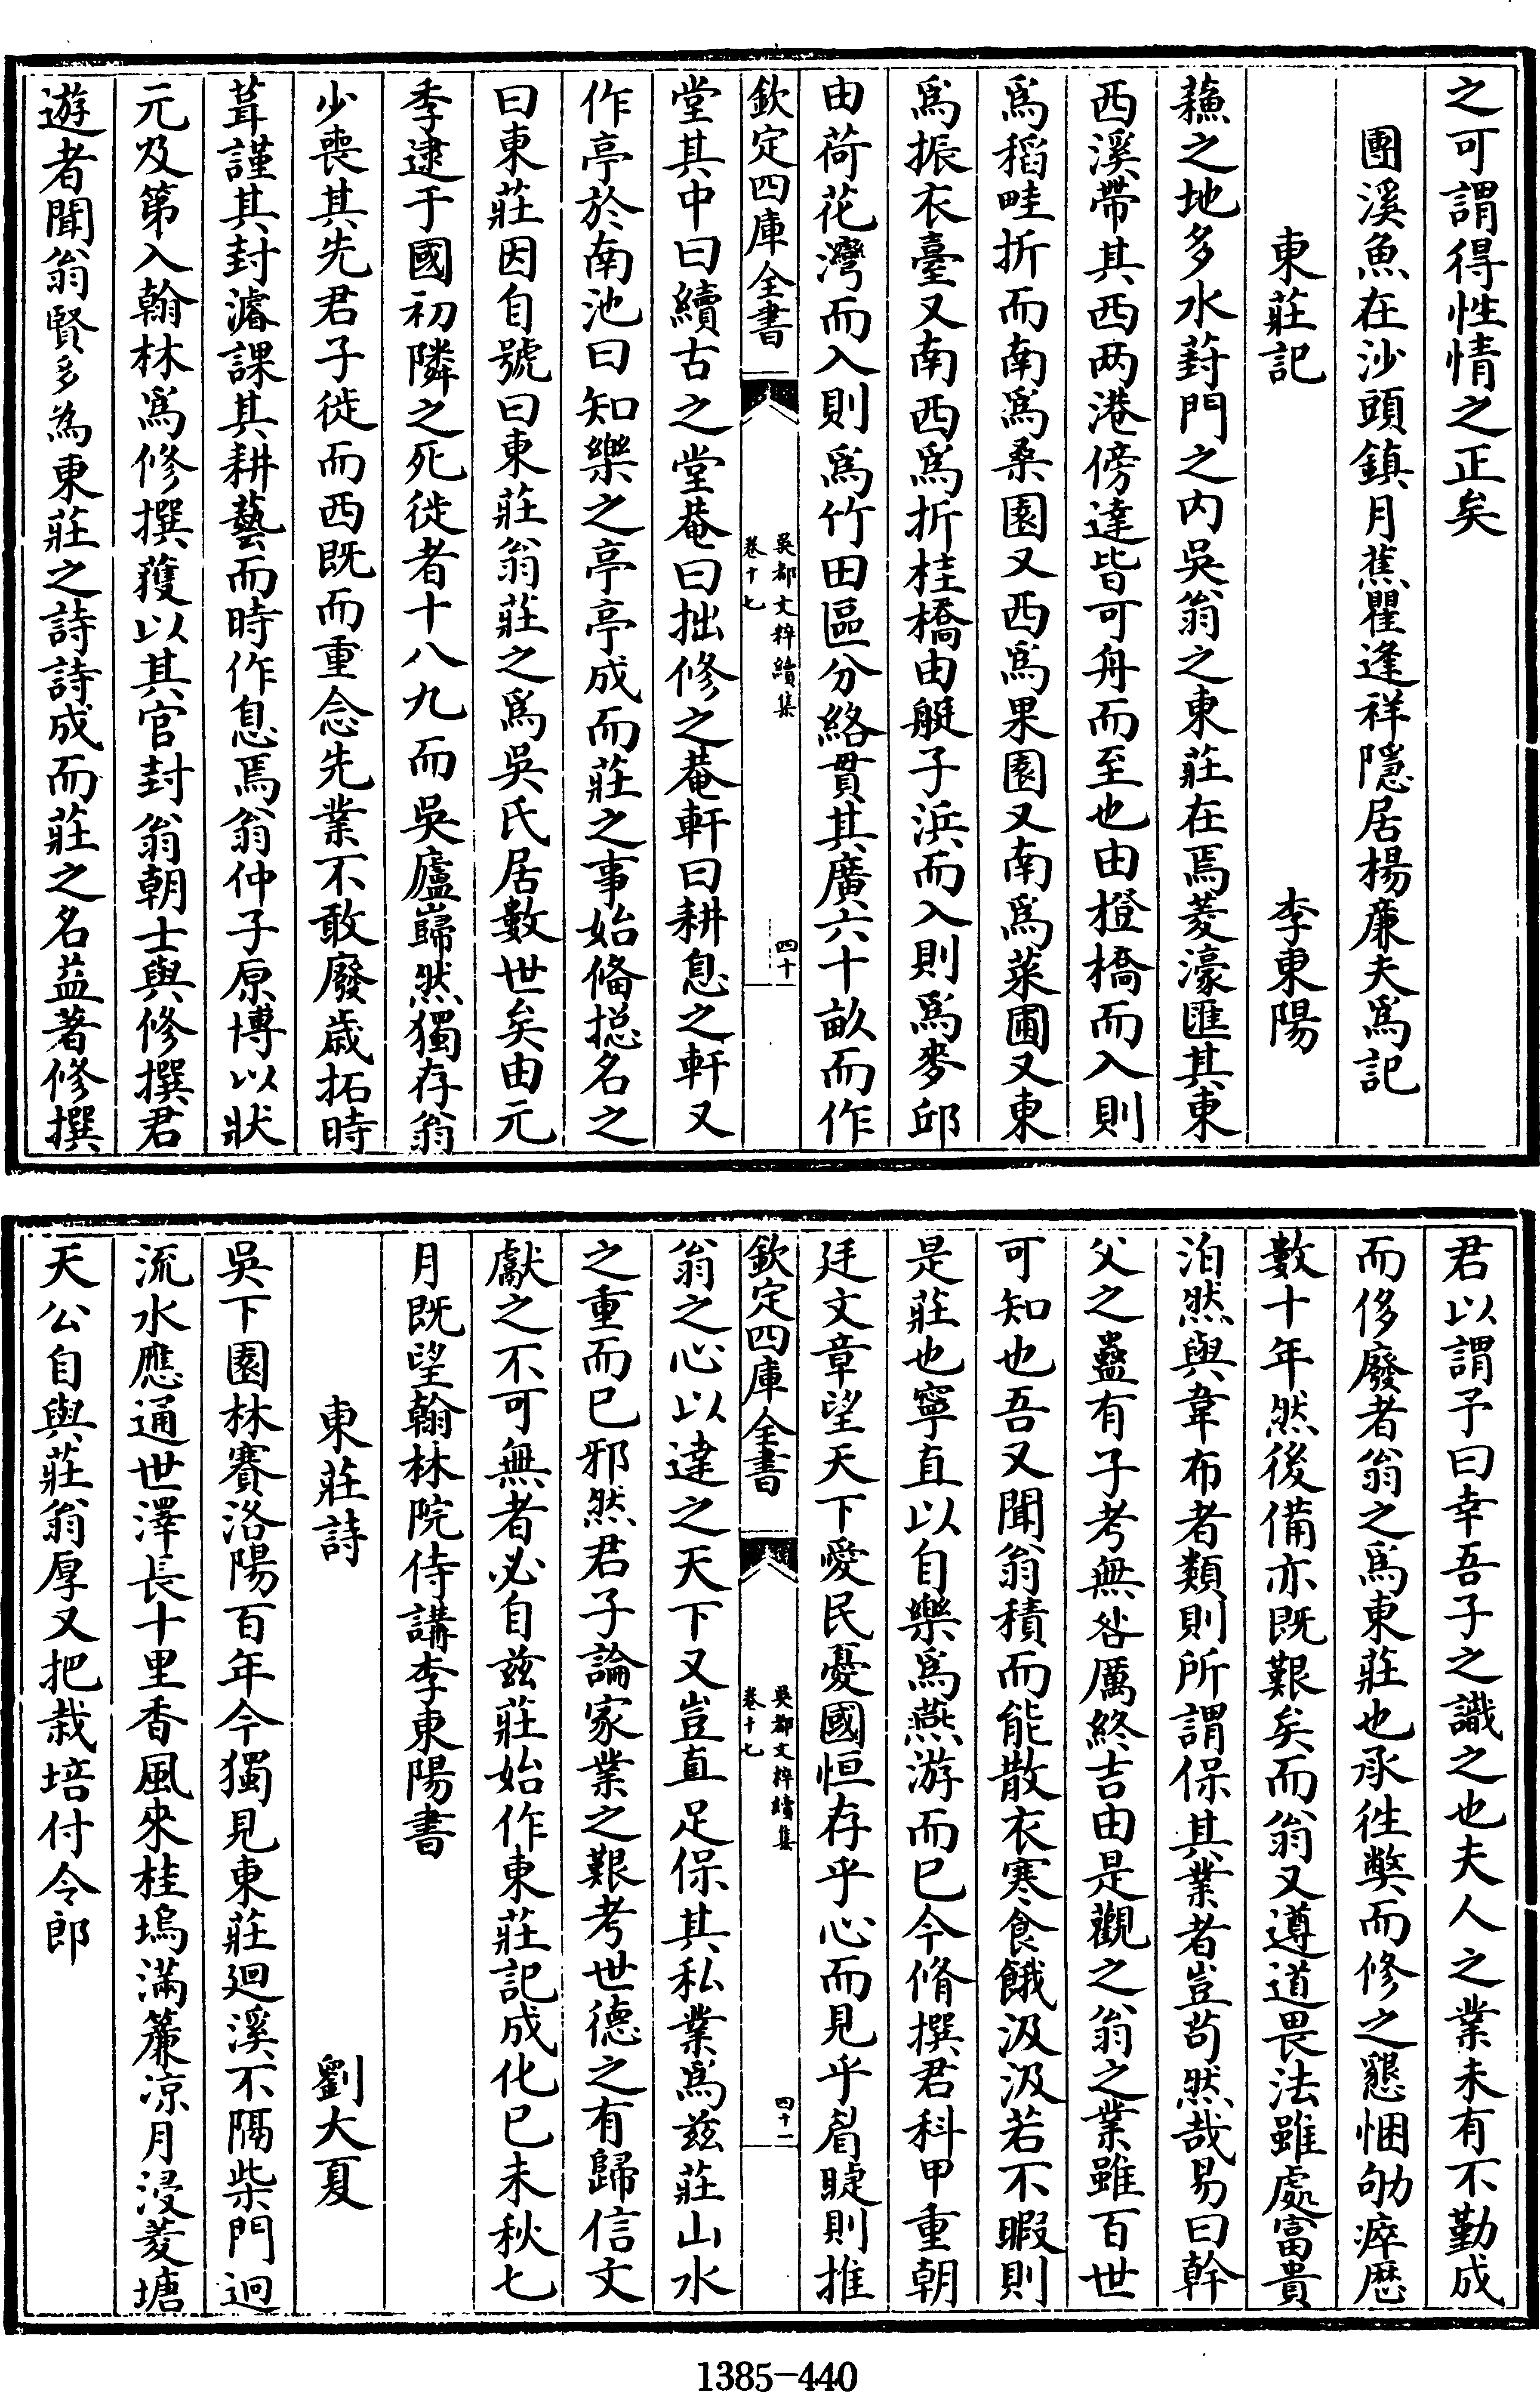 之可謂得性情之正矣
團溪魚在沙頭鎮月蕉瞿逢祥隱居楊亷夫爲記
東莊記 李東陽
蘓之地多水葑門之内吳翁之東莊在焉菱濠匯其東
西溪帶其西两港傍達皆可舟而至也由橙橋而入則
爲稻畦折而南爲桑園又西爲果園又南爲菜圃又東
爲振衣臺又南西爲折桂橋由艇子浜而入則爲麥邱
由荷花灣而入則爲竹田區分絡貫其廣六十畝而作
欽定四庫全書 吳都文粹續集 卷十七 四十
堂其中曰續古之堂菴曰拙修之菴軒曰耕息之軒又
作亭於南池曰知樂之亭亭成而莊之事始偹揔名之
曰東莊因自號曰東莊翁莊之爲吳氏居數世矣由元
季逮于國初隣之死徙者十八九而吳廬巋然獨存翁
少喪其先君子徙而西既而重念先業不敢廢歳拓時
葺謹其封濬課其耕藝而時作息焉翁仲子原博以狀
元及第入翰林爲修撰獲以其官封翁朝士與修撰君
遊者聞翁賢多為東莊之詩詩成而莊之名益著修撰
君以謂予曰幸吾子之識之也夫人之業未有不勤成
而侈廢者翁之爲東莊也承徃獘而修之懇悃劬瘁歴
數十年然後備亦既艱矣而翁又遵道畏法雖處富貴
泊然與韋布者類則所謂保其業者豈茍然哉易曰幹
父之蠱有子考無咎厲終吉由是觀之翁之業雖百世
可知也吾又聞翁積而能散衣寒食餓汲汲若不暇則
是莊也寧直以自樂爲燕游而已今脩撰君科甲重朝
廷文章望天下愛民憂國恒存乎心而見乎眉睫則推
欽定四庫全書 吳都文粹續集 卷十七 四十一
翁之心以達之天下又豈直足保其私業爲兹莊山水
之重而已邪然君子論家業之艱考世德之有歸信文
獻之不可無者必自兹莊始作東莊記成化已未秋七
月既望翰林院侍講李東陽書
東莊詩 劉大夏
吳下園林賽洛陽百年今獨見東莊廻溪不隔柴門迥
流水應通世澤長十里香風來桂塢滿簾凉月浸菱塘
天公自與莊翁厚又把栽培付令郎
1385-440